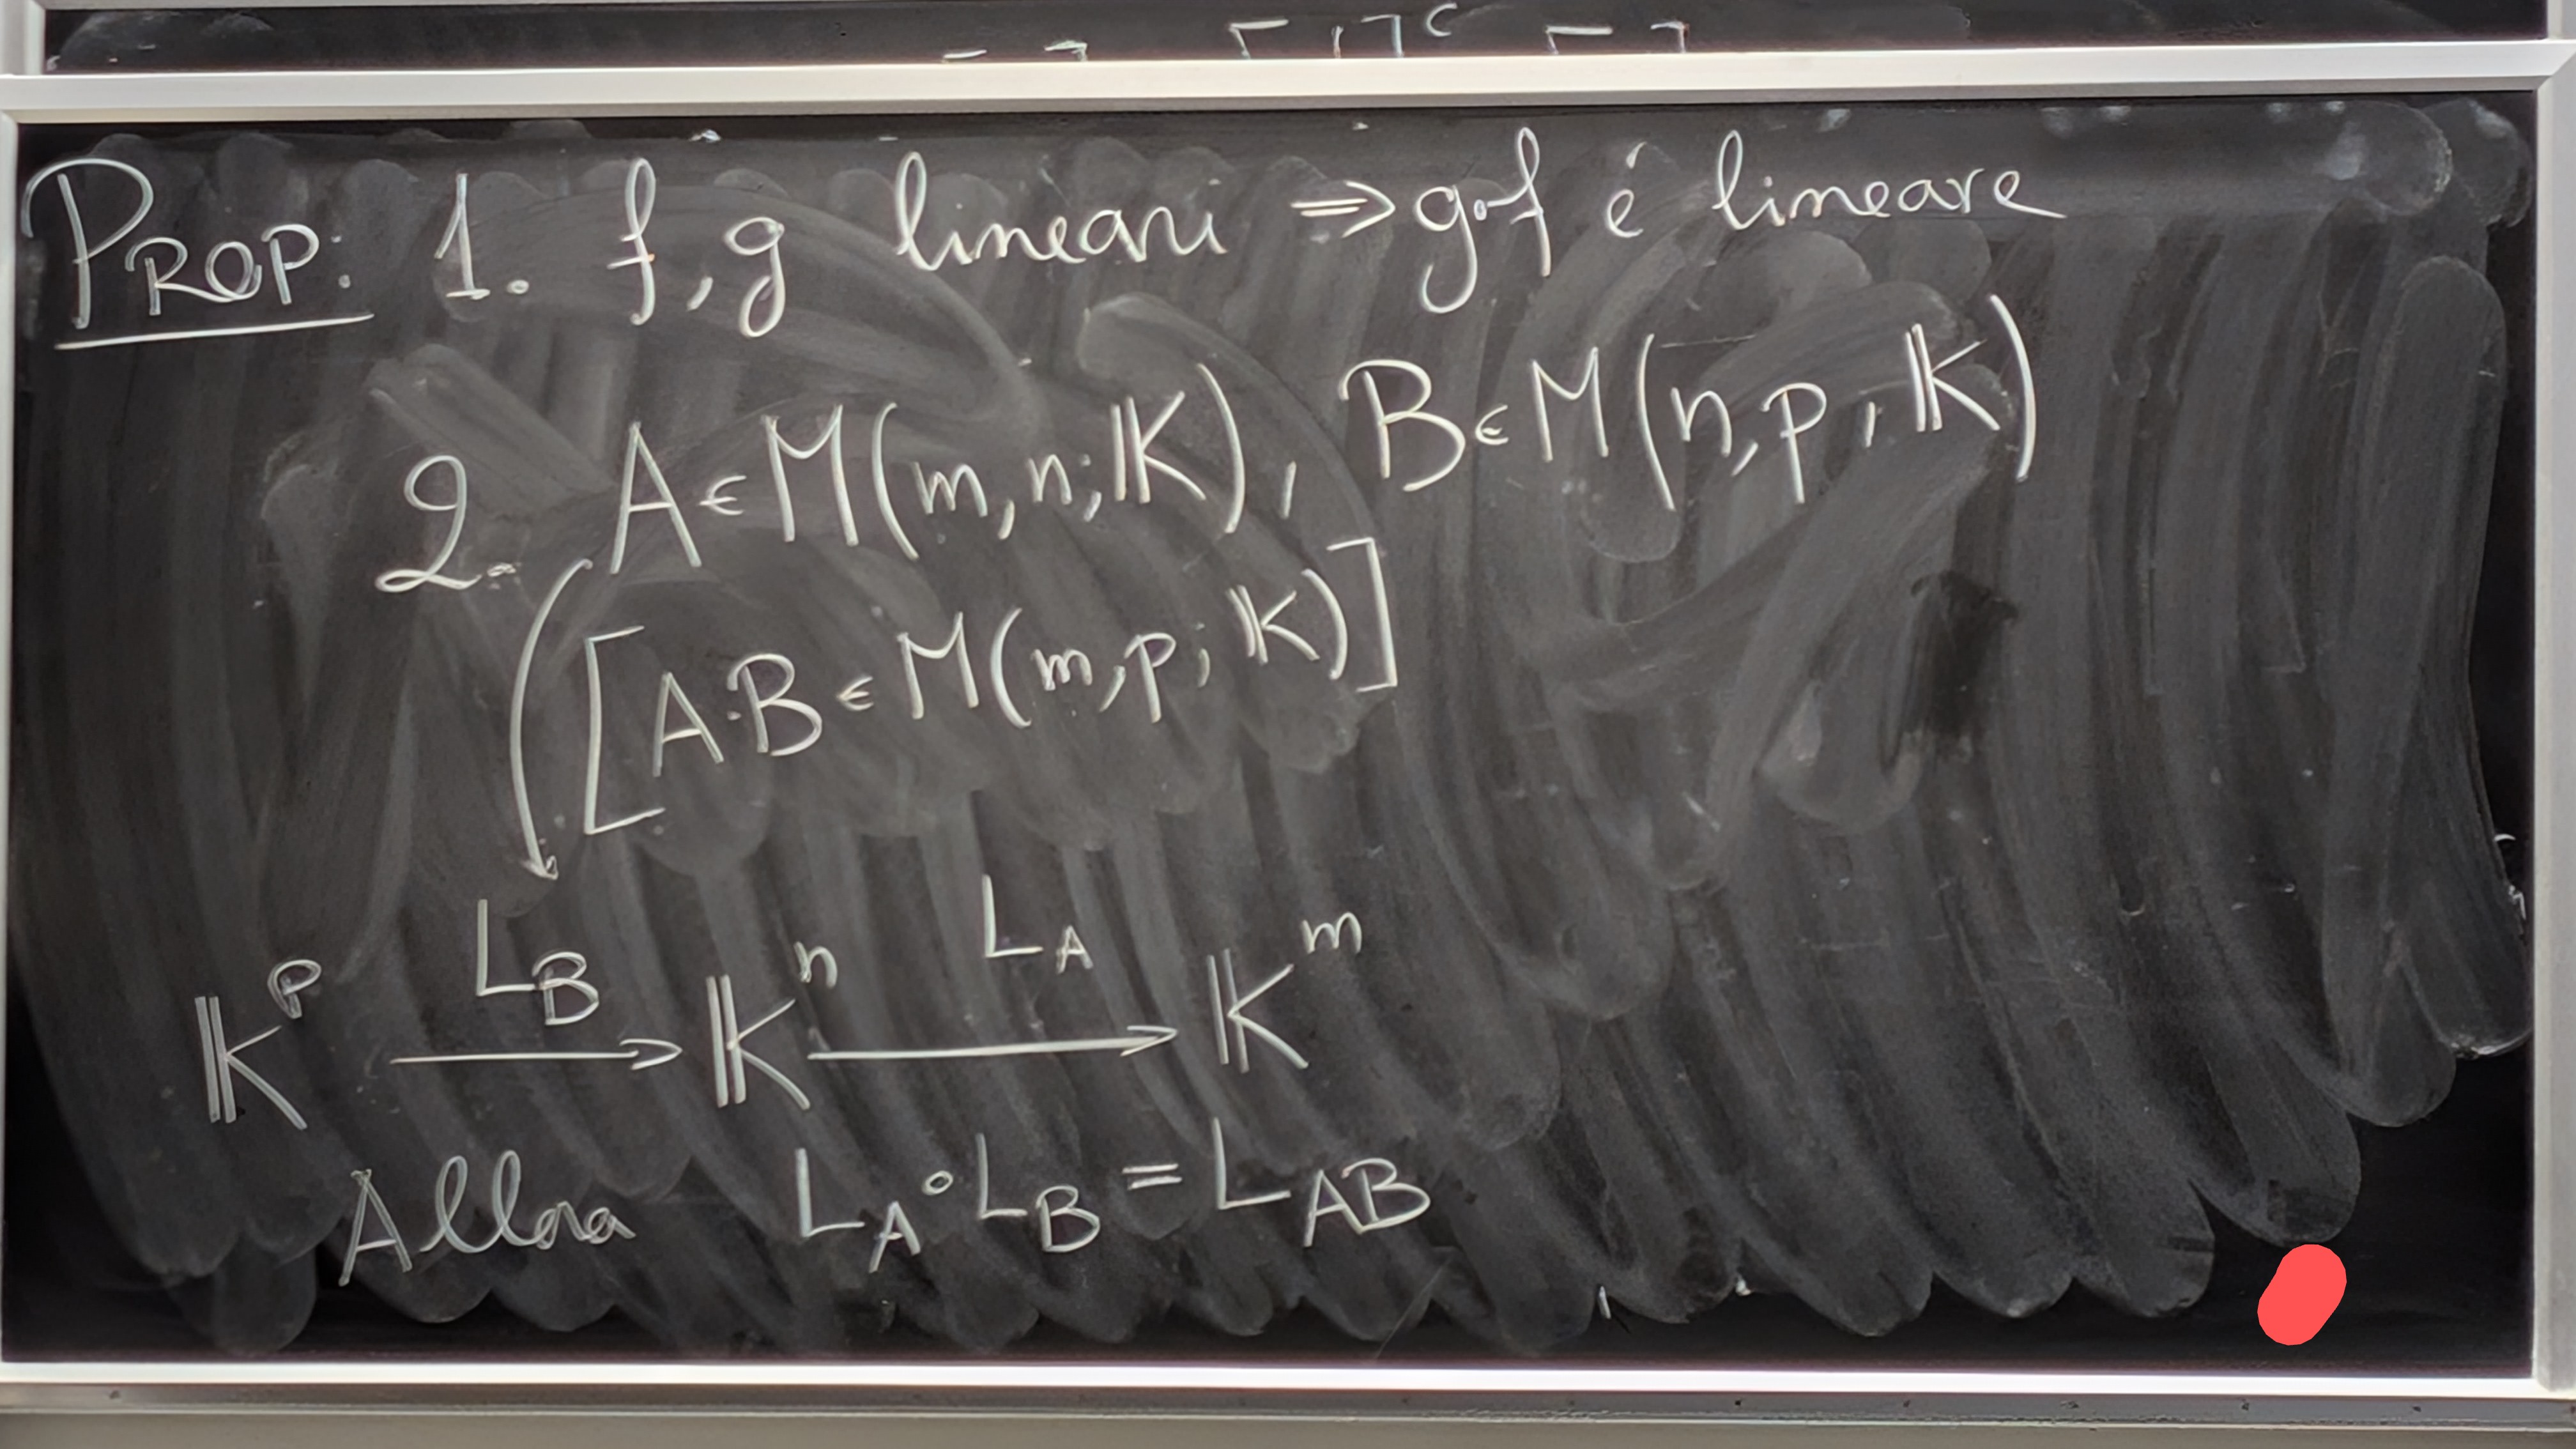 PROP: 1. f, g lineari ⇒ g∘f é lineare
2. A ∈ M(m,n;𝕂), B ∈ M(n,p,𝕂)
[A·B ∈ M(m,p;𝕂)]
𝕂^p —L_B→ 𝕂^n —L_A→ 𝕂^m
Allora L_A ∘ L_B = L_AB